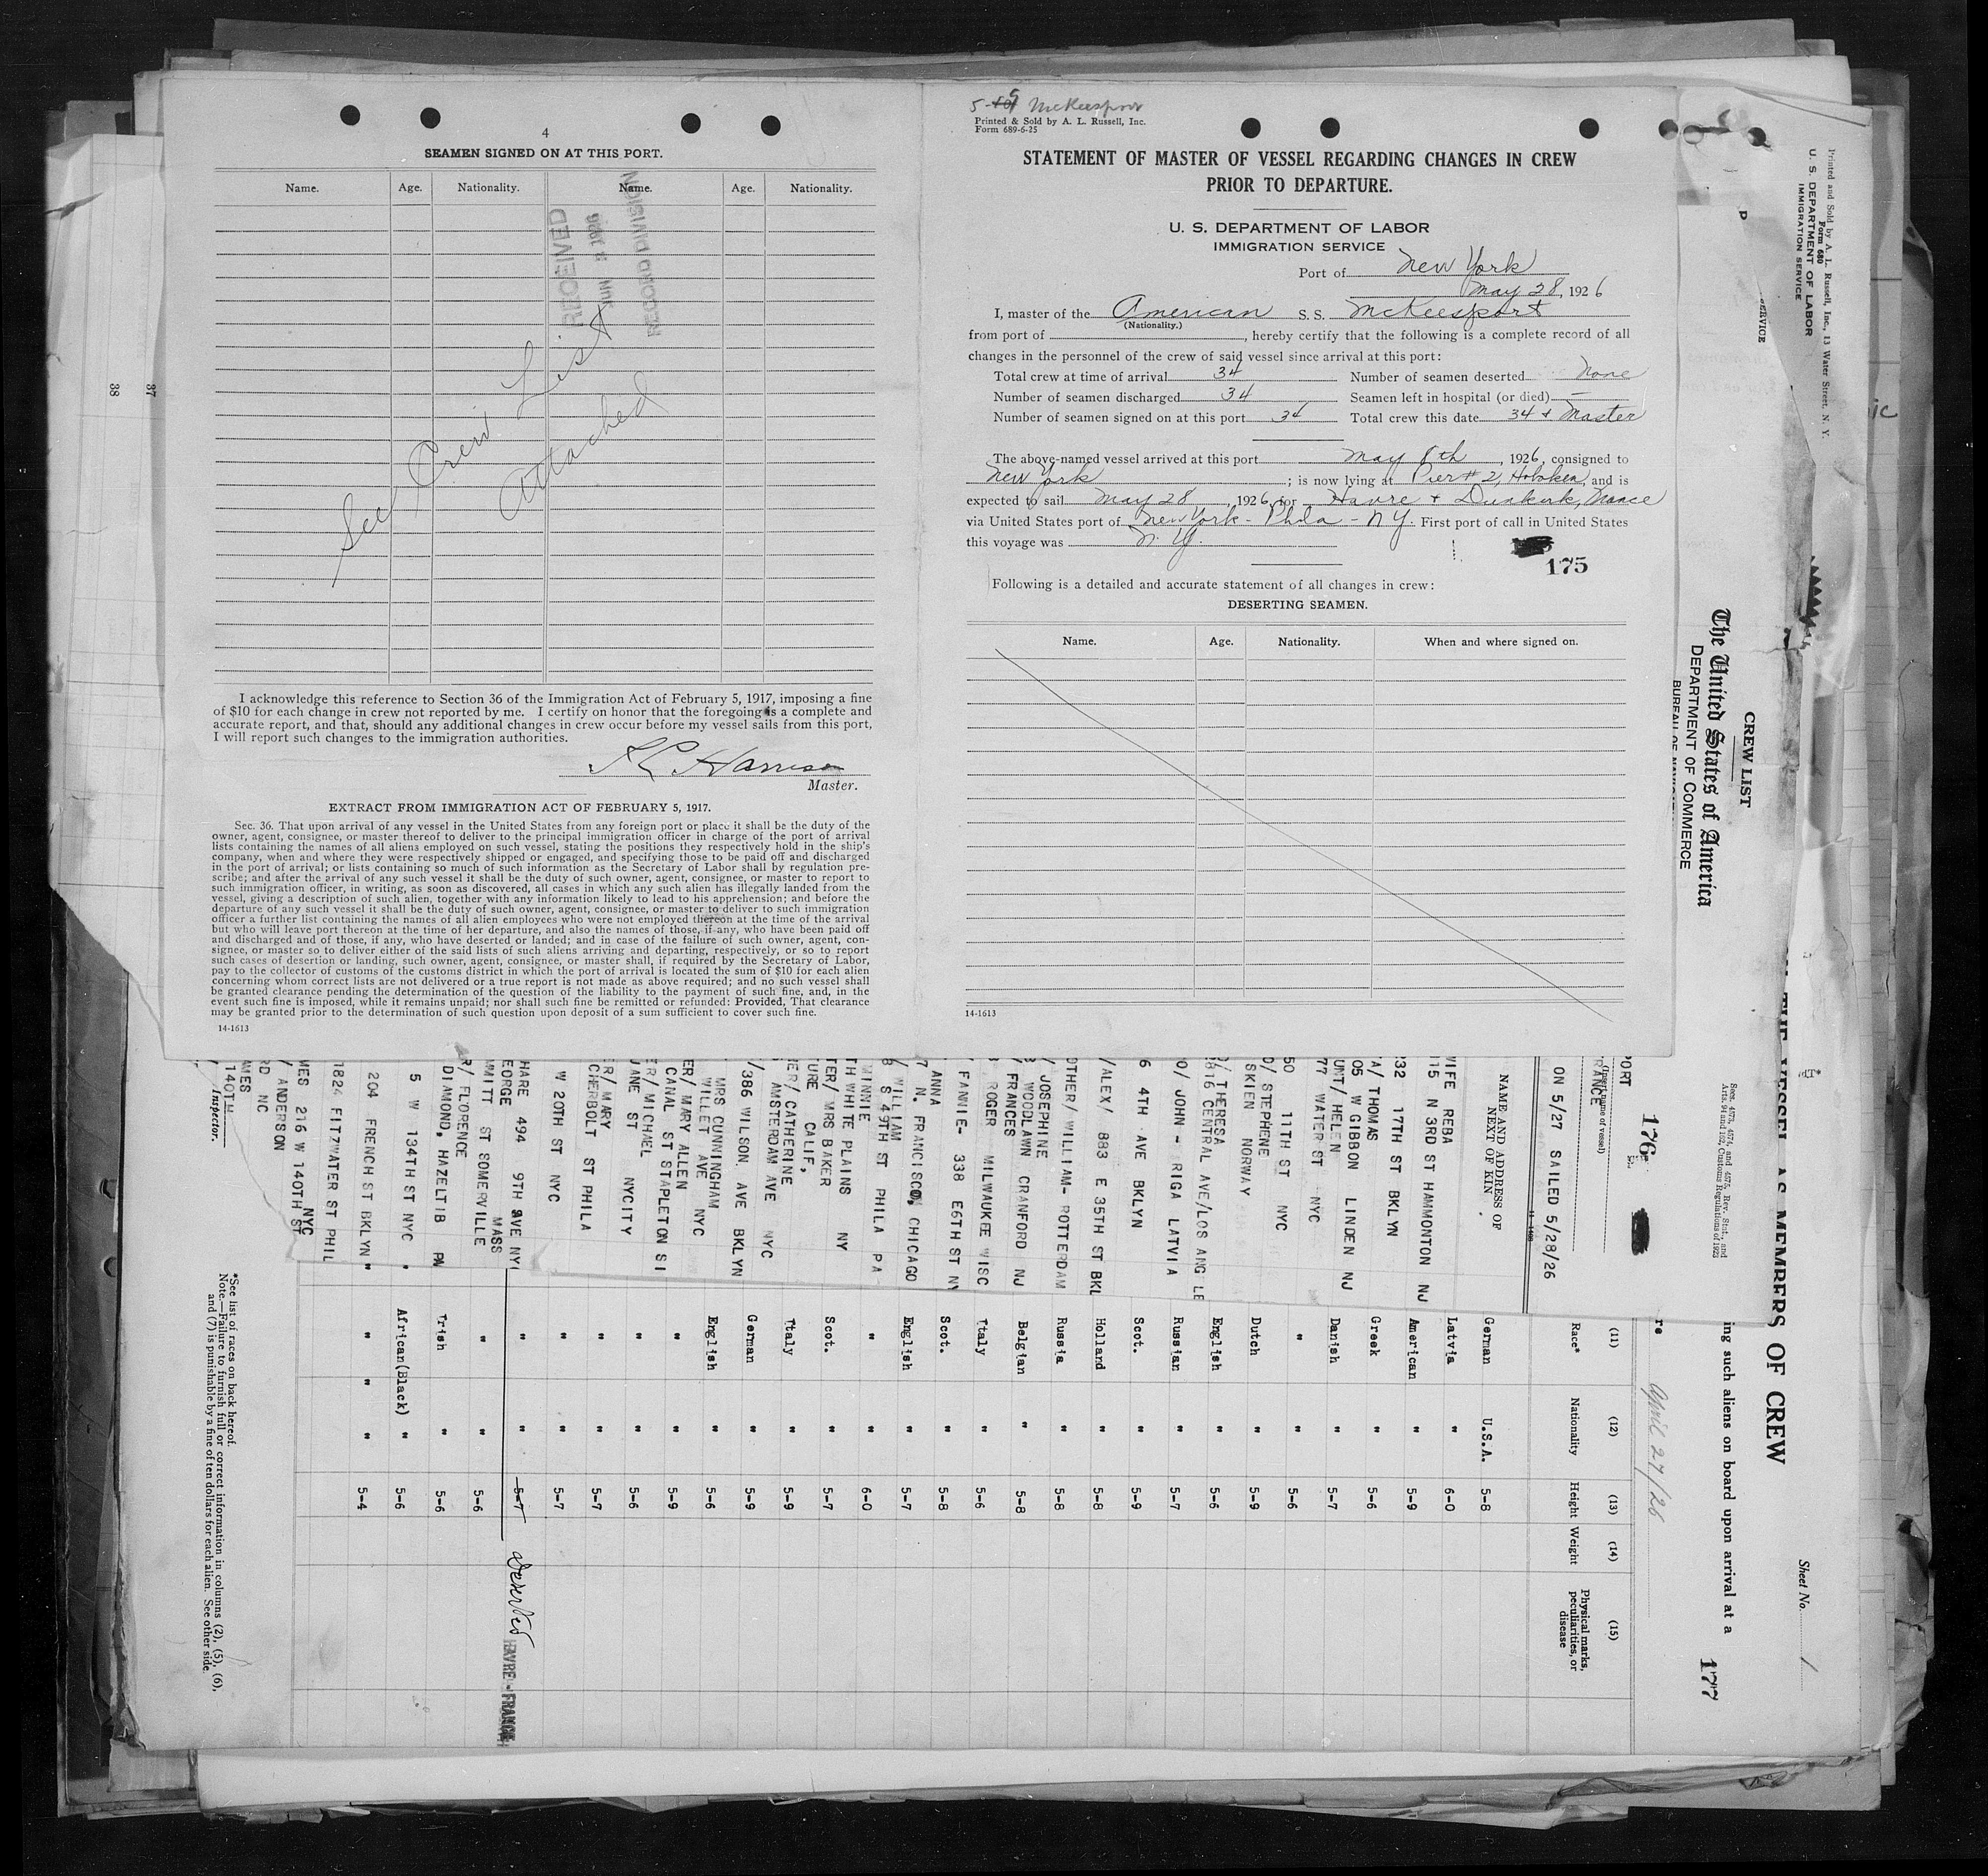 4
SEAMEN SIGNED ON AT THIS PORT.
Name. Age. Nationality. Name. Age. Nationality.
RECEIVED
JUN 3 1926
RECORD DIVISION
See Crew List
Attached
I acknowledge this reference to Section 36 of the Immigration Act of February 5, 1917, imposing a fine
of $10 for each change in crew not reported by me. I certify on honor that the foregoing is a complete and
accurate report, and that, should any additional changes in crew occur before my vessel sails from this port,
I will report such changes to the immigration authorities.
Harrison
Master.
EXTRACT FROM IMMIGRATION ACT OF FEBRUARY 5, 1917.
Sec. 36. That upon arrival of any vessel in the United States from any foreign port or place it shall be the duty of the
owner, agent, consignee, or master thereof to deliver to the principal immigration officer in charge of the port of arrival
lists containing the names of all aliens employed on such vessel, stating the positions they respectively hold in the ship's
company, when and where they were respectively shipped or engaged, and specifying those to be paid off and discharged
in the port of arrival; or lists containing so much of such information as the Secretary of Labor shall by regulation pre-
scribe; and after the arrival of any such vessel it shall be the duty of such owner, agent, consignee, or master to report to
such immigration officer, in writing, as soon as discovered, all cases in which any such alien has illegally landed from the
vessel, giving a description of such alien, together with any information likely to lead to his apprehension; and before the
departure of any such vessel it shall be the duty of such owner, agent, consignee, or master to deliver to such immigration
officer a further list containing the names of all alien employees who were not employed thereon at the time of the arrival
but who will leave port thereon at the time of her departure, and also the names of those, if any, who have been paid off
and discharged and of those, if any, who have deserted or landed; and in case of the failure of such owner, agent, con-
signee, or master so to deliver either of the said lists of such aliens arriving and departing, respectively, or so to report
such cases of desertion or landing, such owner, agent, consignee, or master shall, if required by the Secretary of Labor,
pay to the collector of customs of the customs district in which the port of arrival is located the sum of $10 for each alien
concerning whom correct lists are not delivered or a true report is not made as above required; and no such vessel shall
be granted clearance pending the determination of the question of the liability to the payment of such fine, and, in the
event such fine is imposed, while it remains unpaid; nor shall such fine be remitted or refunded: Provided, That clearance
may be granted prior to the determination of such question upon deposit of a sum sufficient to cover such fine.
14-1613
McKeesport
Printed & Sold by A. L. Russell, Inc.
Form 689-6-25
STATEMENT OF MASTER OF VESSEL REGARDING CHANGES IN CREW
PRIOR TO DEPARTURE.
U. S. DEPARTMENT OF LABOR
IMMIGRATION SERVICE
Port of New York
May 28, 1926
I, master of the American S. S. McKeesport
(Nationality.)
from port of , hereby certify that the following is a complete record of all
changes in the personnel of the crew of said vessel since arrival at this port:
Total crew at time of arrival 34 Number of seamen deserted None
Number of seamen discharged 34 Seamen left in hospital (or died) —
Number of seamen signed on at this port 34 Total crew this date 34 + Master
The above-named vessel arrived at this port May 8th, 1926, consigned to
New York ; is now lying at Pier # 2, Hoboken, and is
expected to sail May 28, 1926, for Havre + Dunkirk, France
via United States port of New York - Phila - NY. First port of call in United States
this voyage was N. Y.
175
Following is a detailed and accurate statement of all changes in crew:
DESERTING SEAMEN.
Name. Age. Nationality. When and where signed on.
14-1613
Printed and Sold by A. L. Russell, Inc., 13 Water Street, N. Y.
Form 680
U. S. DEPARTMENT OF LABOR
IMMIGRATION SERVICE
Sheet No. 1
MEMBERS OF CREW
ing such aliens on board upon arrival at a
177
April 27/26
CREW LIST
The United States of America
DEPARTMENT OF COMMERCE
BUREAU OF NAVIGATION
Secs. 4573, 4574, and 4575, Rev. Stat., and
Arts. 94 and 182, Customs Regulations of 1923
176
PORT
(Insert name of vessel)
RANCE
ON 5/27 SAILED 5/28/26
NAME AND ADDRESS OF
NEXT OF KIN
(11) (12) (13) (14) (15)
Race* Nationality Height Weight Physical marks, peculiarities, or disease
German U.S.A. 5-8
WIFE REBA
Latvia " 6-0
115 N 3RD ST HAMMONTON NJ
American " 5-9
32 17TH ST BKLYN
A/ THOMAS
Greek " 5-6
05 W GIBBON LINDEN NJ
UNT/ HELEN
Danish " 5-7
77 WATER ST NYC
50 11TH ST NYC
" " 5-6
O/ STEPHENE
SKIEN NORWAY
Dutch " 5-9
/ THERESA
3816 CENTRAL AVE/LOS ANG LE
English " 5-6
O/ JOHN - RIGA LATVIA
Russian " 5-7
6 4TH AVE BKLYN
Scot. " 5-9
/ALEX/ 883 E 35TH ST BKL
Holland " 5-8
OTHER/ WILLIAM- ROTTERDAM
Russia " 5-8
JOSEPHINE
WOODLAWN CRANFORD NJ
Belgian " 5-8
/ FRANCES
ROGER MILWAUKEE WISC
Italy " 5-6
FANNIE- 338 E6TH ST NY
Scot. " 5-8
ANNA
7 N. FRANCISCO, CHICAGO
English " 5-7
/ WILLIAM
S 49TH ST PHILA PA
" " 6-0
MINNIE
TH WHITE PLAINS NY
Scot. " 5-7
TER/ MRS BAKER
URE CALIF,
Italy " 5-9
ER/ CATHERINE
AMSTERDAM AVE NYC
German " 5-9
/386 WILSON AVE BKLYN
MRS CUNNINGHAM
WILLET AVE NYC
English " 5-6
ER/ MARY ALLEN
CANAL ST STAPLETON SI
" " 5-9
ER/ MICHAEL
UANE ST NYCITY
" " 5-6
ER/ MARY
CHERBOLT ST PHILA
" " 5-7
W 20TH ST NYC
" " 5-7
HARE 494 9TH AVE NY
" " 5-7 Deserted HAVRE - FRANCE
EORGE
MMITT ST SOMERVILLE MASS
" " 5-6
R/ FLORENCE
DIAMOND, HAZELTIB PA
Irish " 5-6
5 W 134TH ST NYC
African(Black) " 5-6
204 FRENCH ST BKLYN
" " " 5-4
1824 FITZWATER ST PHIL
MES 216 W 140TH ST NYC
/ ANDERSON
RD NC
MES
140TH
Inspector.
*See list of races on back hereof.
Note.—Failure to furnish full or correct information in columns (2), (5), (6),
and (7) is punishable by a fine of ten dollars for each alien. See other side.
37
38